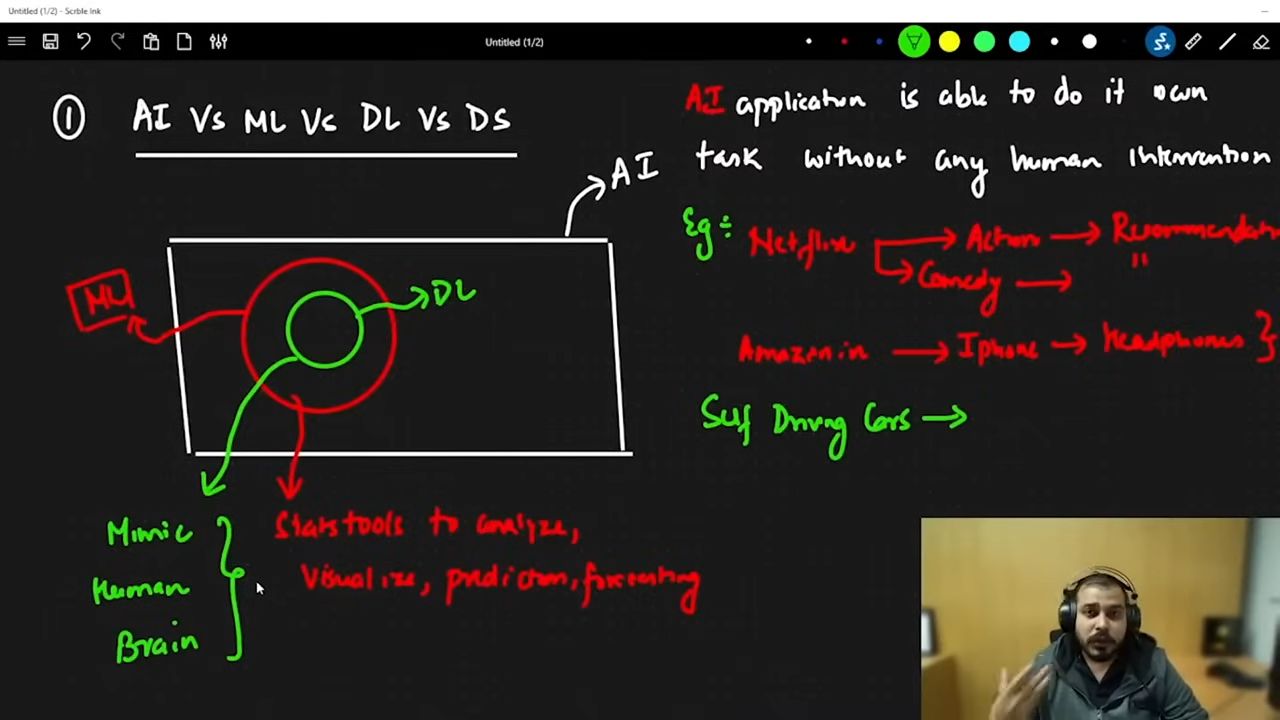 Untitled (1/2) - Scrble Ink
Untitled (1/2)
① AI Vs ML Vs DL Vs DS
AI
ML
DL
Mimic
Human
Brain
Stats tools to analyze,
Visualize, prediction, forecasting
AI application is able to do it own
task without any human intervention
Eg:
Netflix → Action → Recommendation
→ Comedy → "
Amazon.in → Iphone → Headphones }
Self Driving Cars →